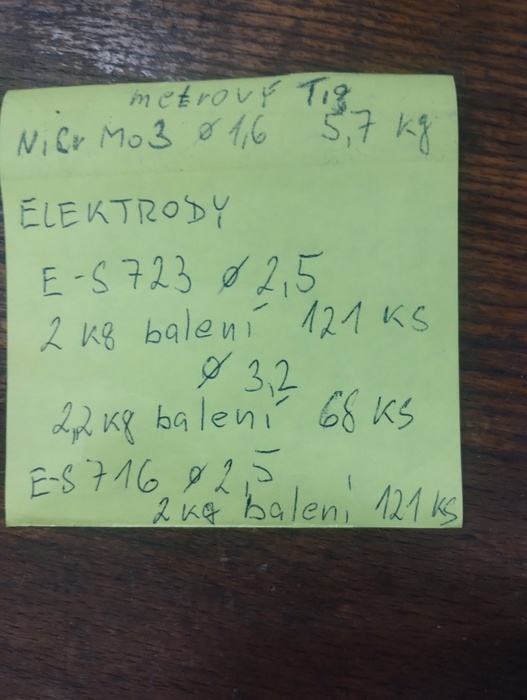 metrový Tig
NiCr Mo3 ø 1,6 5,7 kg
ELEKTRODY
E-S 723 ø 2,5
2 kg balení 121 KS
ø 3,2
2,2 kg balení 68 KS
E-S 716 ø 2,5
2 kg balení 121 KS